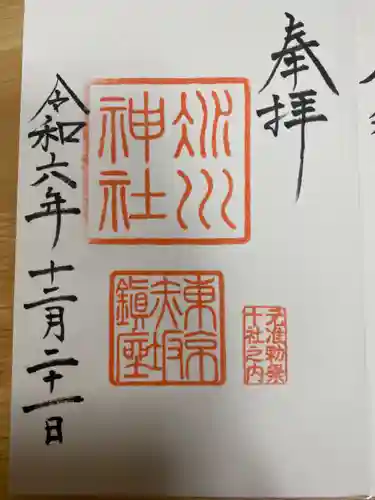 奉拝
氷川
神社
東京
赤坂
鎮座
元准勅祭
十社之内
令和六年 十二月二十一日